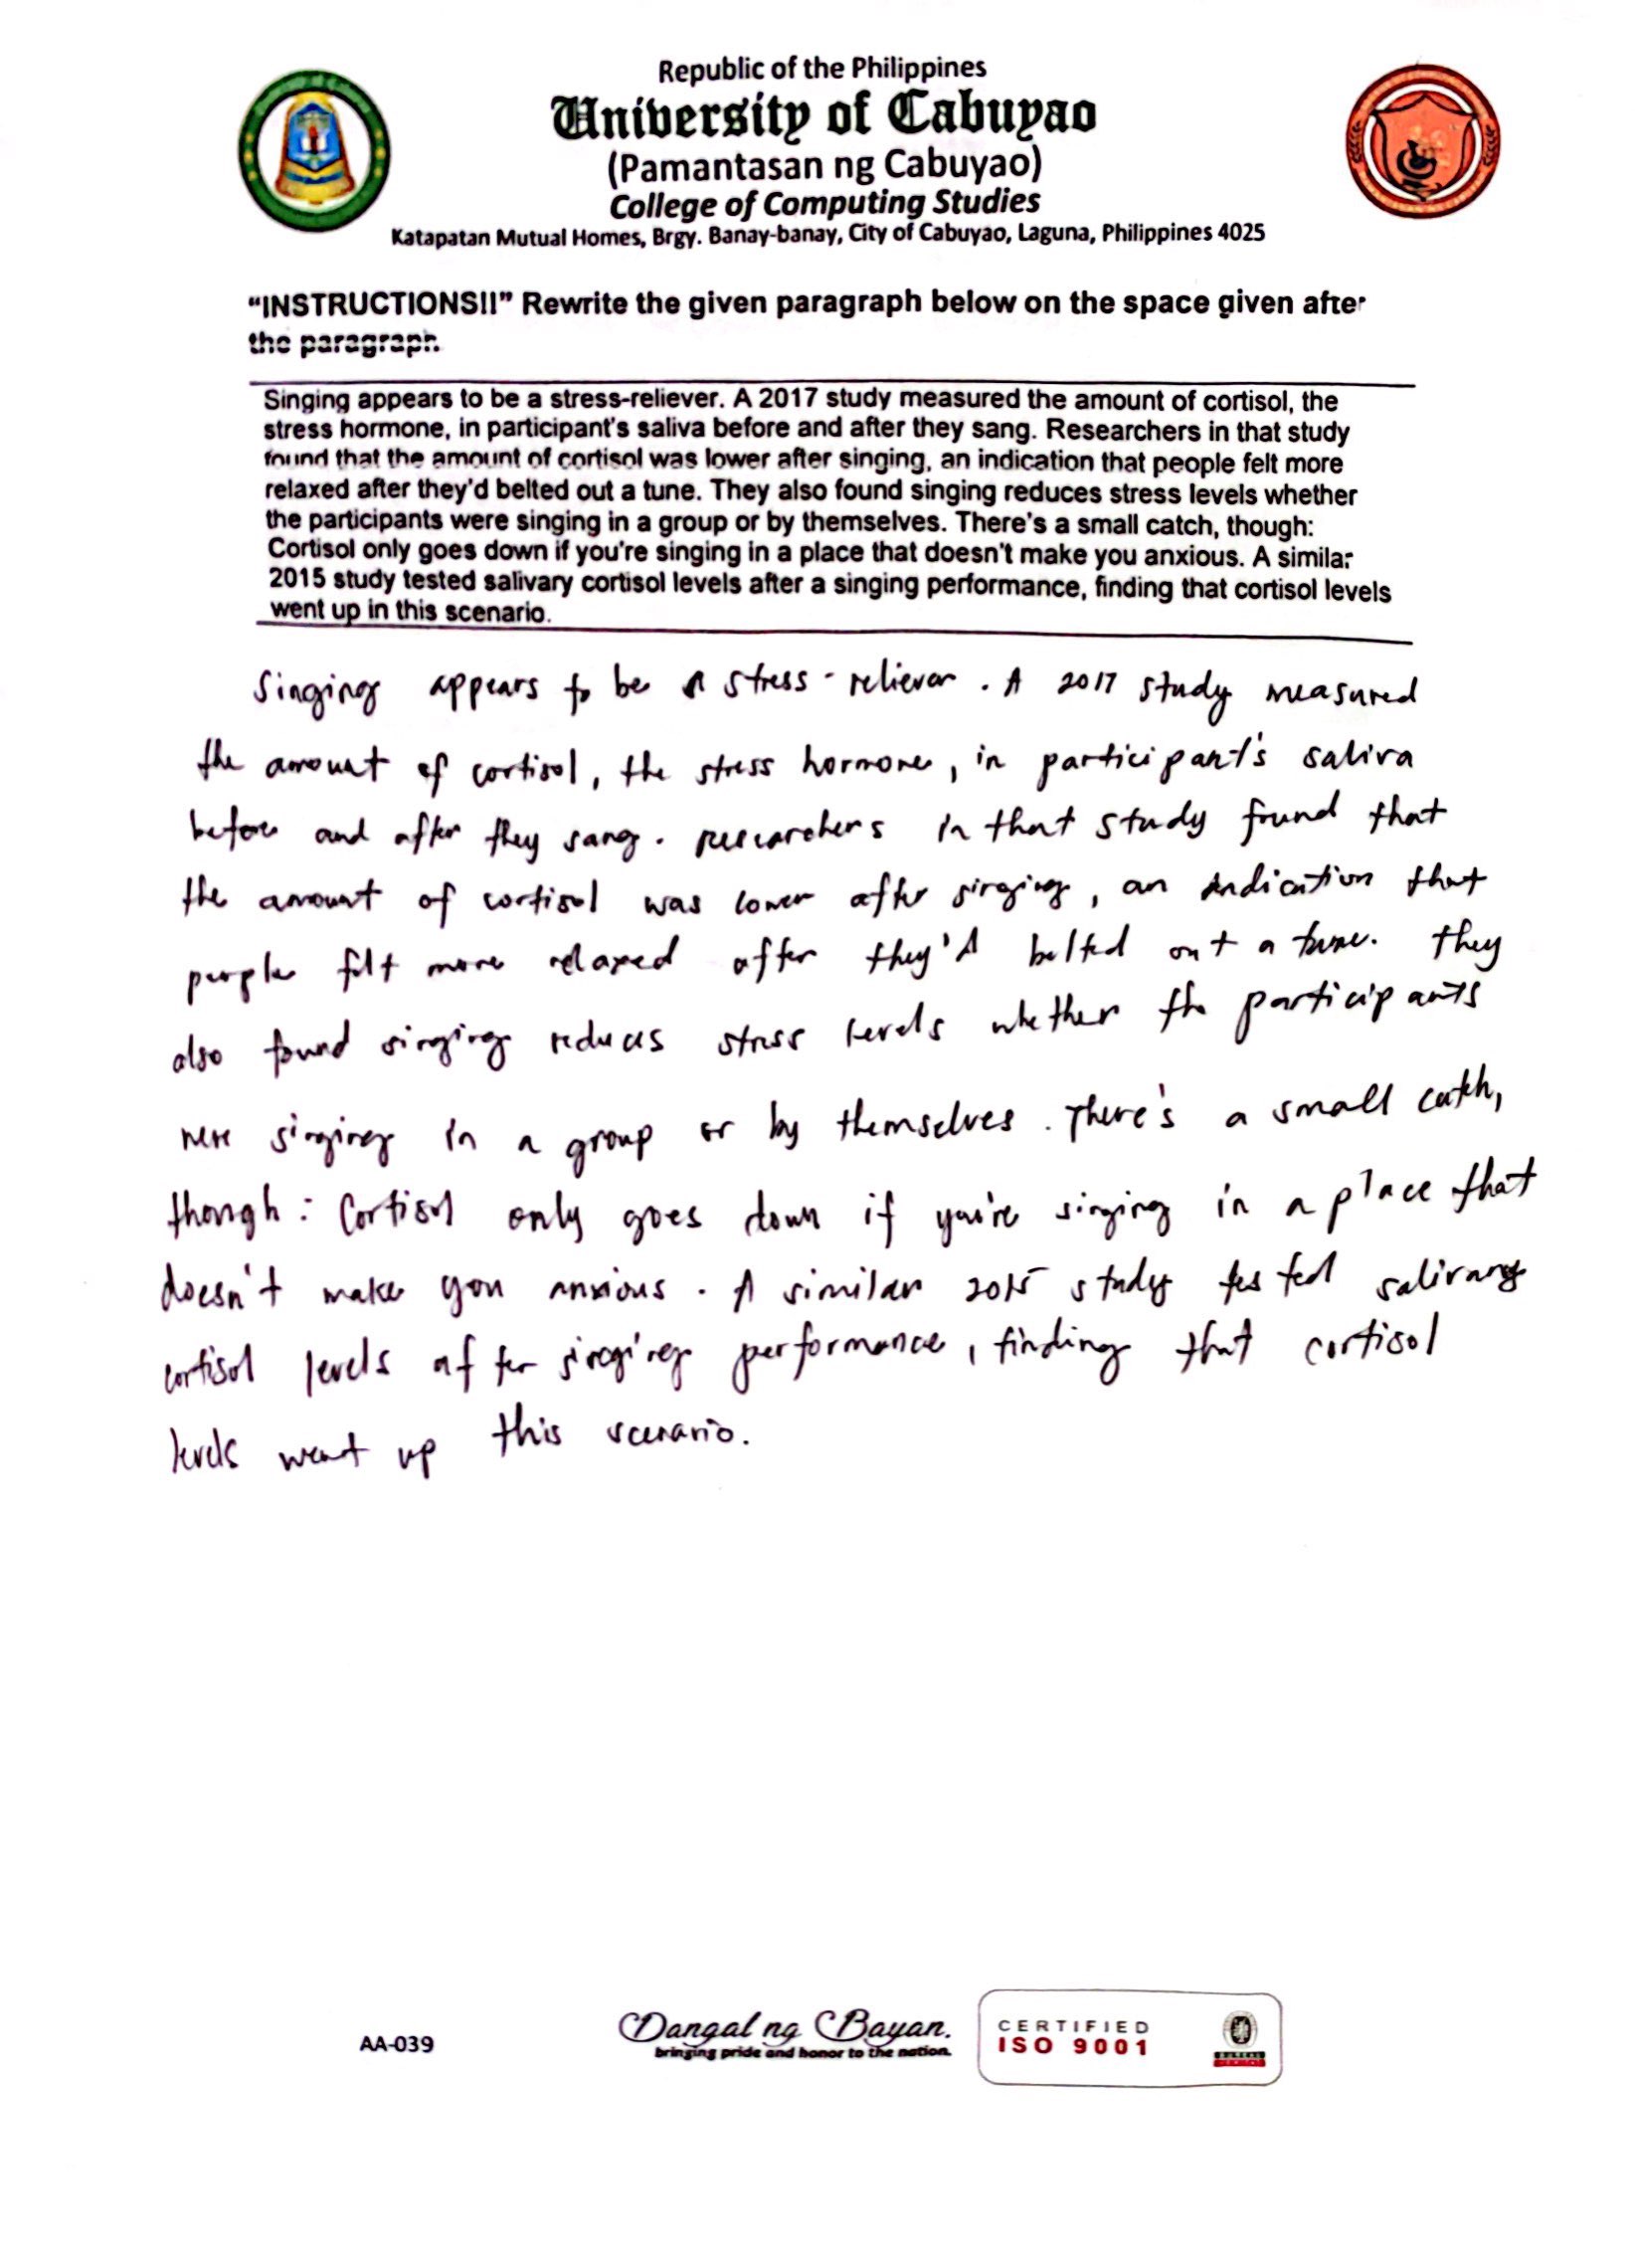 Republic of the Philippines
University of Cabuyao
(Pamantasan ng Cabuyao)
College of Computing Studies
Katapatan Mutual Homes, Brgy. Banay-banay, City of Cabuyao, Laguna, Philippines 4025
“INSTRUCTIONS!!” Rewrite the given paragraph below on the space given after
the paragraph.
Singing appears to be a stress-reliever. A 2017 study measured the amount of cortisol, the
stress hormone, in participant's saliva before and after they sang. Researchers in that study
found that the amount of cortisol was lower after singing, an indication that people felt more
relaxed after they'd belted out a tune. They also found singing reduces stress levels whether
the participants were singing in a group or by themselves. There's a small catch, though:
Cortisol only goes down if you're singing in a place that doesn't make you anxious. A similar
2015 study tested salivary cortisol levels after a singing performance, finding that cortisol levels
went up in this scenario.
Singing appears to be a stress-reliever. A 2017 study measured
the amount of cortisol, the stress hormone, in participant's saliva
before and after they sang. researchers in that study found that
the amount of cortisol was lower after singing, an indication that
people felt more relaxed after they'd belted out a tune. They
also found singing reduces stress levels whether the participants
were singing in a group or by themselves. There's a small catch,
though: Cortisol only goes down if you're singing in a place that
doesn't make you anxious. A similar 2015 study tested salivary
cortisol levels after singing performance, finding that cortisol
levels went up this scenario.
AA-039
Dangal ng Bayan.
bringing pride and honor to the nation.
CERTIFIED
ISO 9001